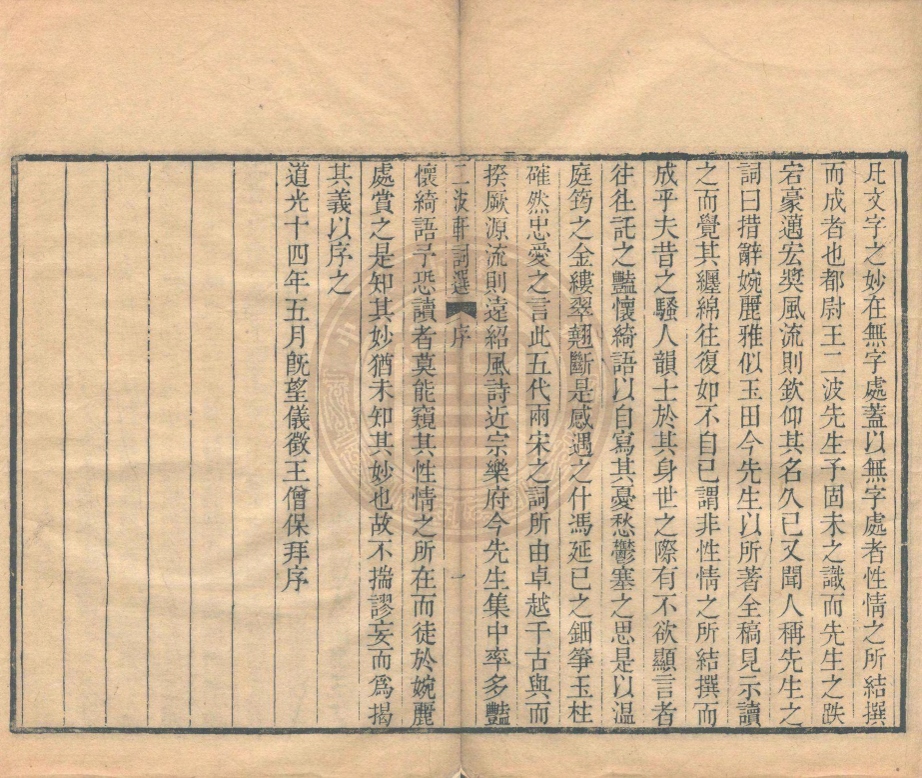 凡文字之妙在無字處蓋以無字處者性情之所結撰
而成者也都尉王二波先生予固未之識而先生之跌
宕豪邁宏奬風流則欽仰其名久已又聞人稱先生之
詞曰措辭婉麗雅似玉田今先生以所著全稿見示讀
之而覺其纏綿往復如不自已謂非性情之所結撰而
成乎夫昔之騷人韻士於其身世之際有不欲顯言者
往往託之豔懷綺語以自寫其憂愁鬱塞之思是以温
庭筠之金縷翠翹斷是感遇之什馮延已之鈿箏玉柱
確然忠愛之言此五代兩宋之詞所由卓越千古與而
揆厥源流則遠紹風詩近宗樂府今先生集中率多豔
二波軒詞選 序 一
懷綺語予恐讀者莫能窺其性情之所在而徒於婉麗
處賞之是知其妙猶未知其妙也故不揣謬妄而爲揭
其義以序之
道光十四年五月旣望儀徵王僧保拜序